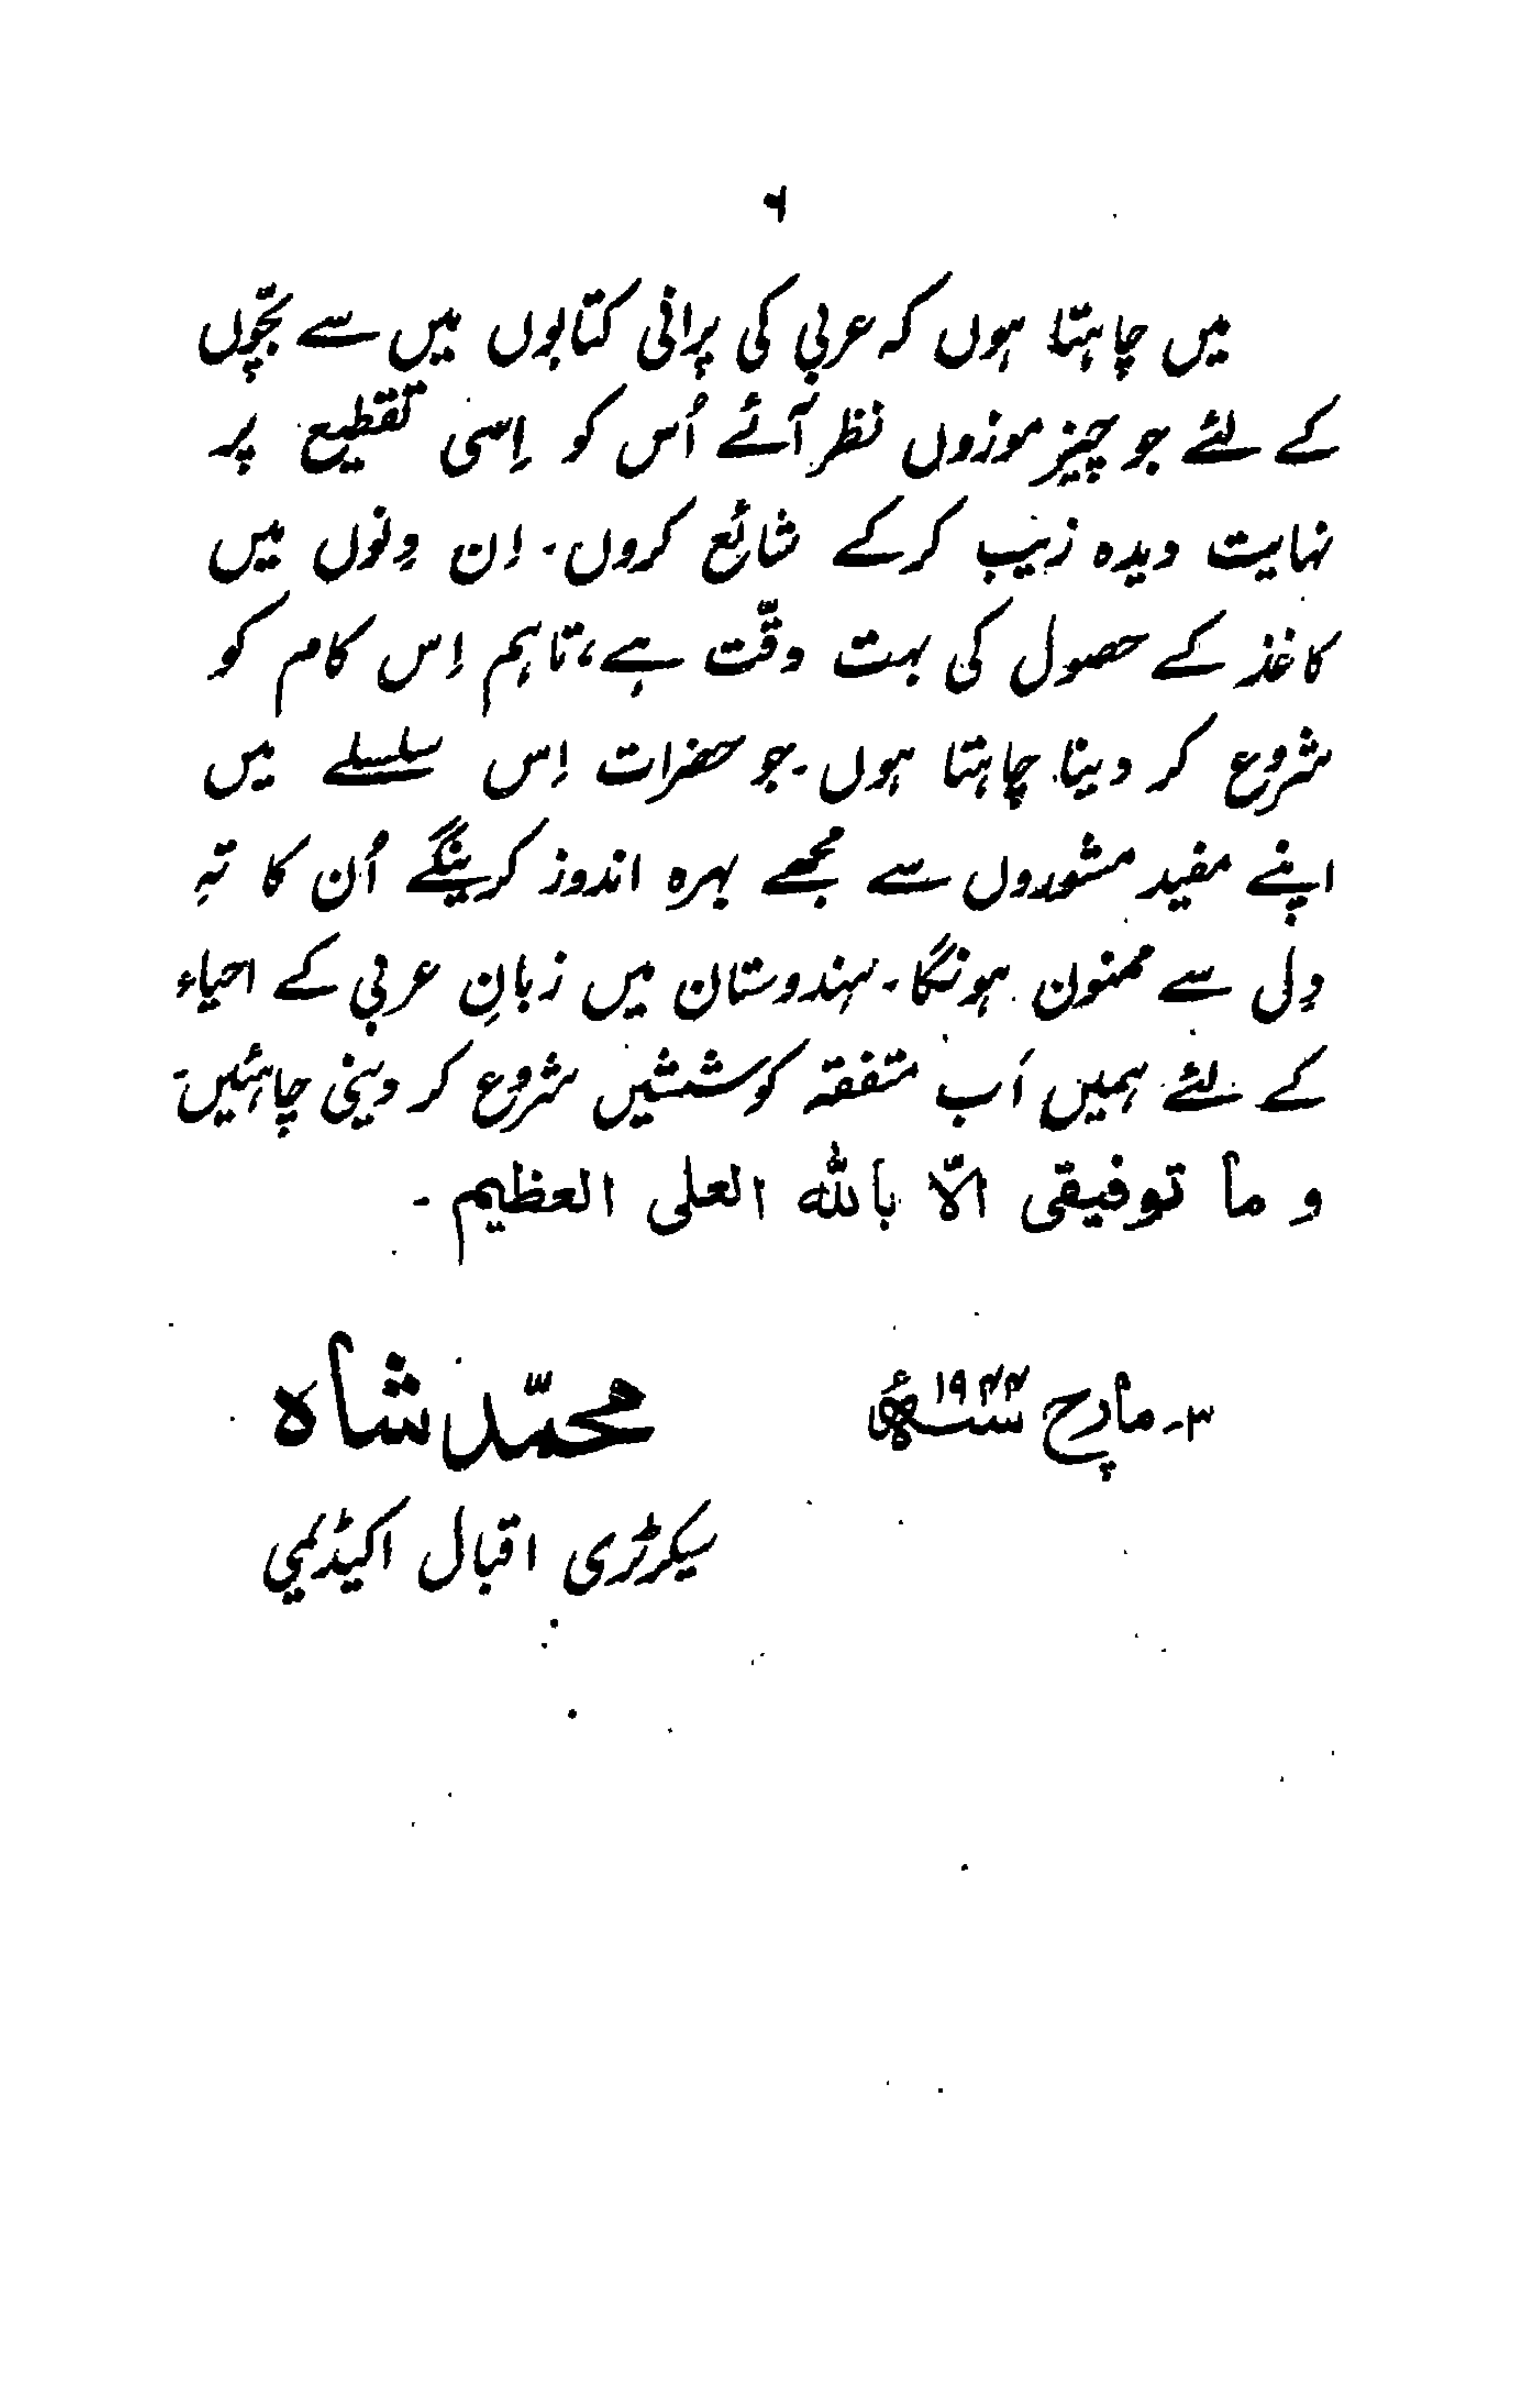 ۶
میں چاہتا ہوں کہ عربی کی پرانی کتابوں میں سے بچّوں
کے لئے جو چیز موزوں نظر آئے اُس کو اِسی تقطیع پر
نہایت دیدہ زیب کرکے شائع کروں۔ اِن دِنوں میں
کاغذ کے حصول کی بہت دقّت ہے، تاہم اِس کام کو
شروع کر دینا چاہتا ہوں۔ جو حضرات اِس سلسلے میں
اپنے مفید مشوروں سے مجھے بہرہ اندوز کرینگے اُن کا تہِ
دِل سے ممنون ہونگا۔ ہندوستان میں زبانِ عربی کے احیاء
کے لئے ہمیں اَب متفقہ کوششیں شروع کر دینی چاہئیں۔
و ما توفیقی الّا باللہ العلی العظیم۔
۳۔ مارچ ۱۹۴۴ء
محمّد شاہ
سیکرٹری اقبال اکیڈیمی